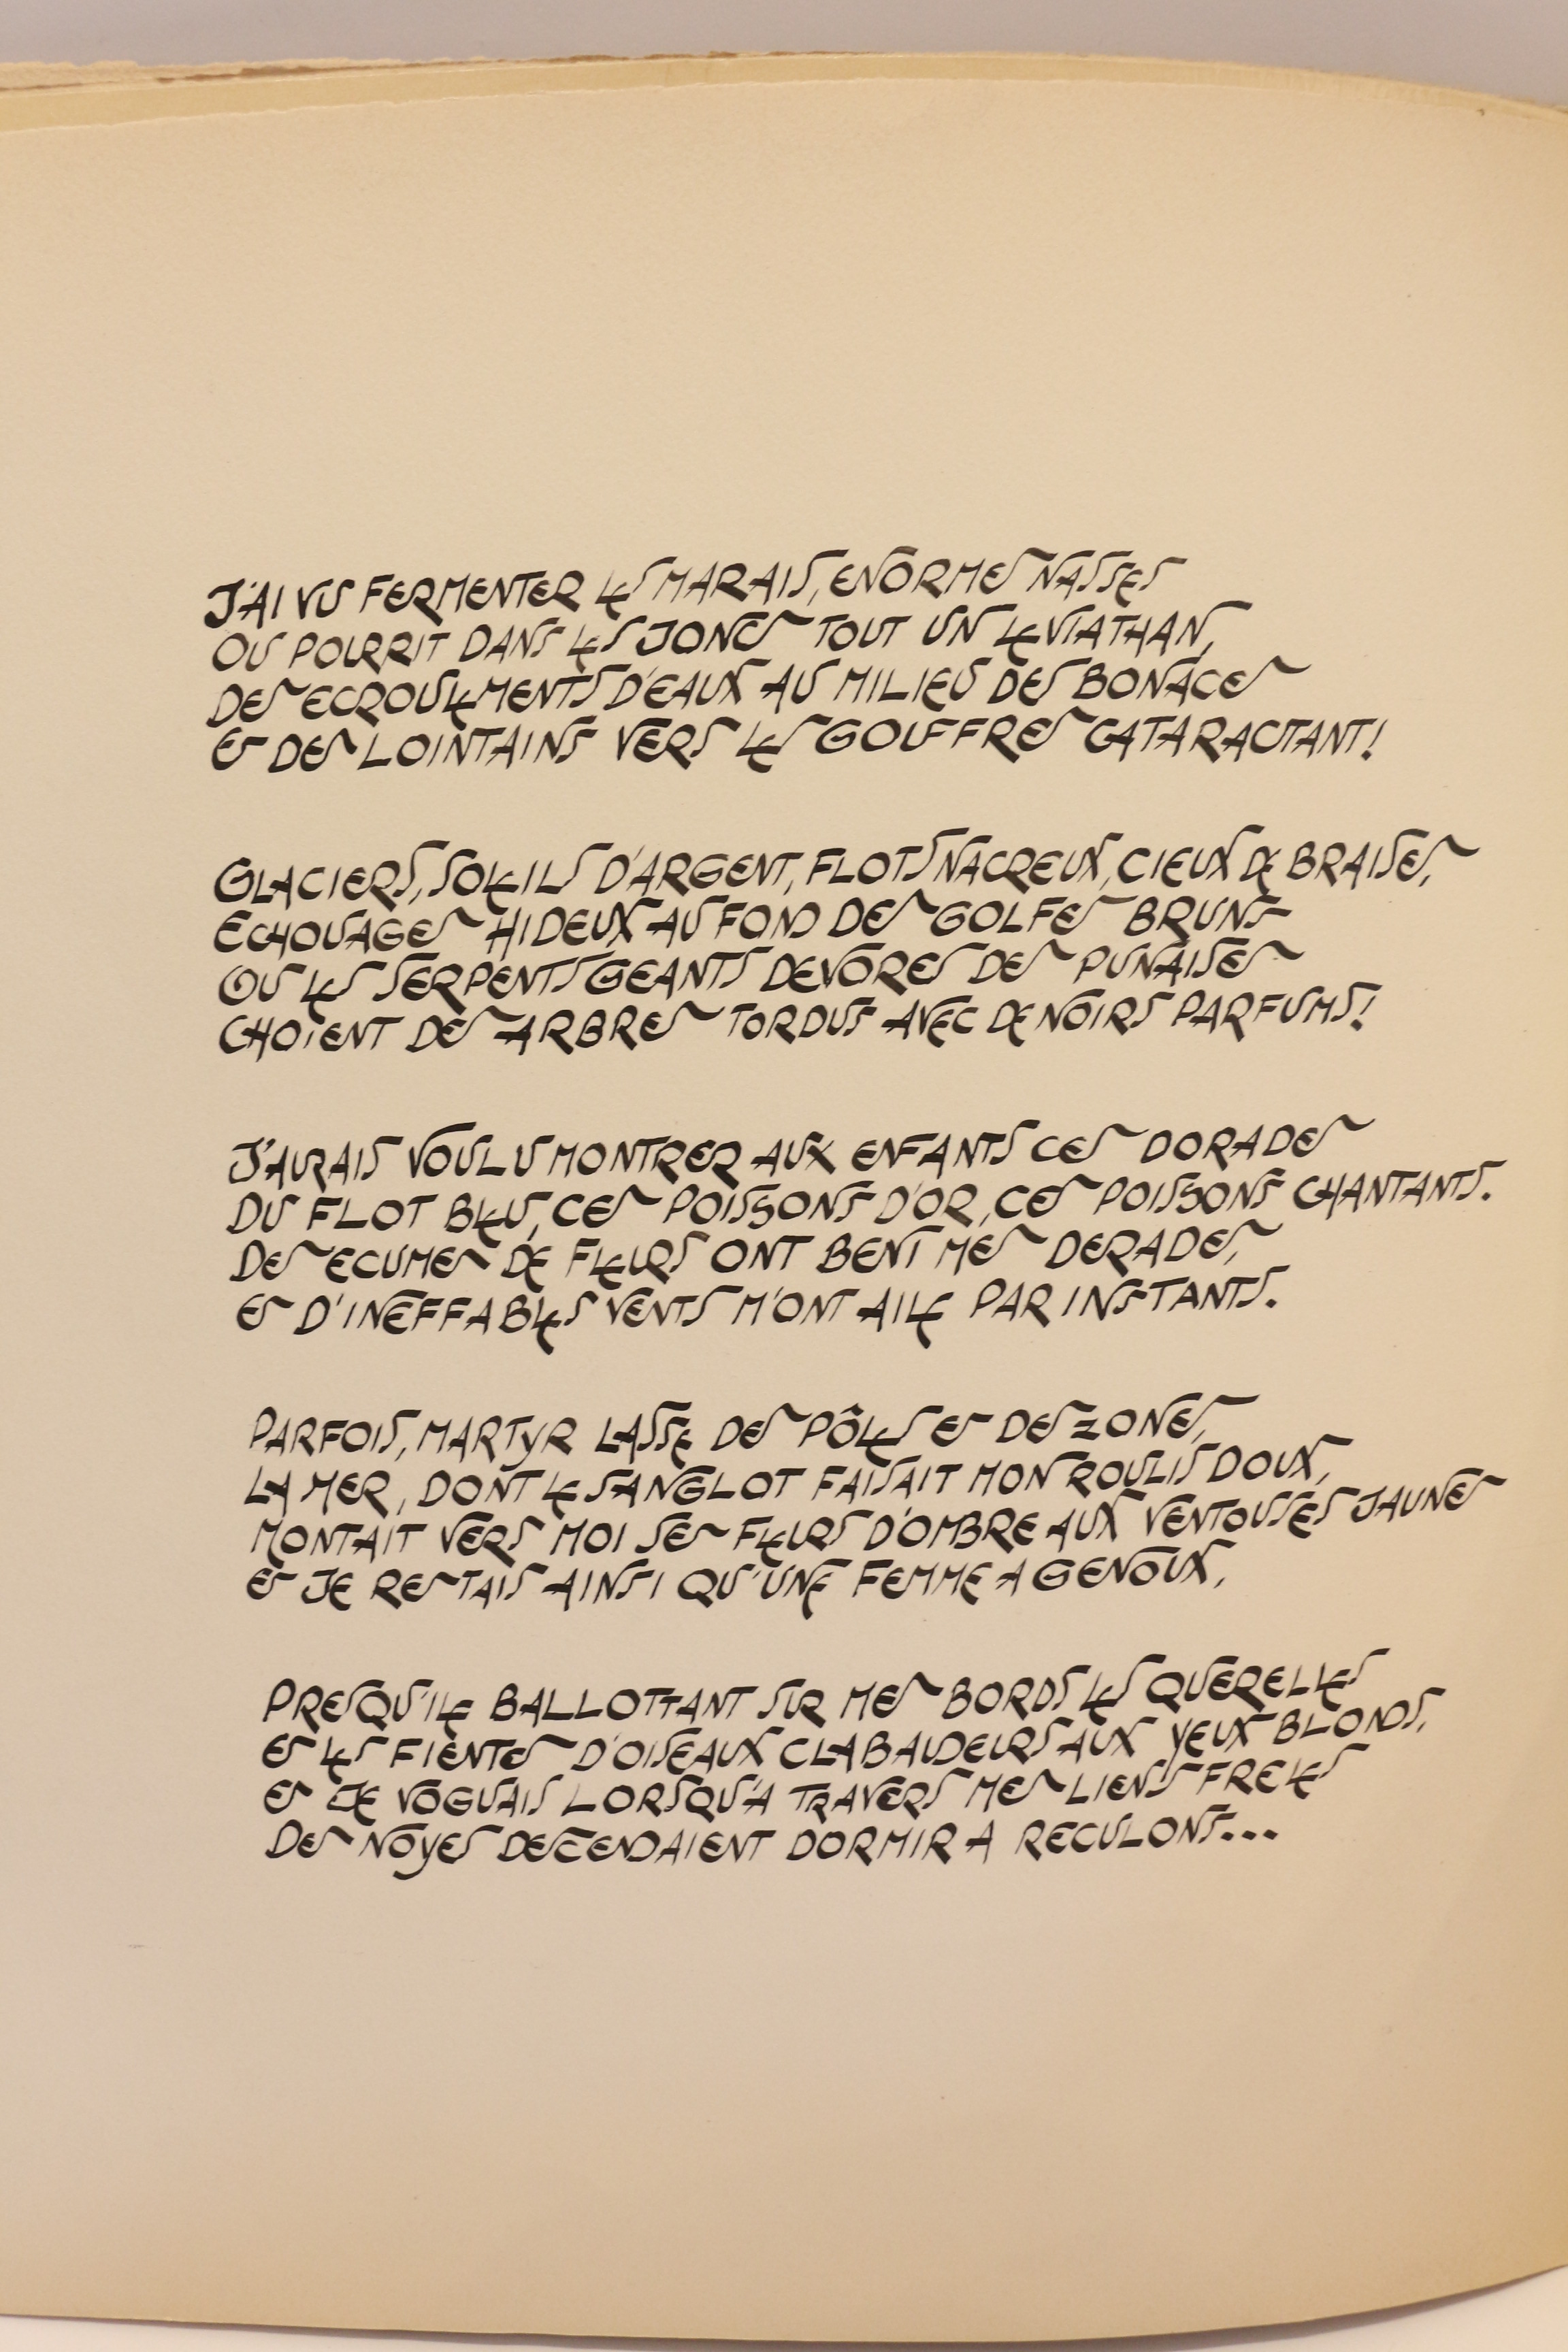 J'AI VU FERMENTER LES MARAIS, ENORMES NASSES
OU POURRIT DANS LES JONCS TOUT UN LEVIATHAN,
DES ECROULEMENTS D'EAUX AU MILIEU DES BONACES
ET DES LOINTAINS VERS LES GOUFFRES CATARACTANT!
GLACIERS, SOLEILS D'ARGENT, FLOTS NACREUX, CIEUX DE BRAISES,
ECHOUAGES HIDEUX AU FOND DES GOLFES BRUNS
OU LES SERPENTS GEANTS DEVORES DES PUNAISES
CHOIENT DES ARBRES TORDUS AVEC DE NOIRS PARFUMS!
J'AURAIS VOULU MONTRER AUX ENFANTS CES DORADES
DU FLOT BLEU, CES POISSONS D'OR, CES POISSONS CHANTANTS.
DES ECUMES DE FLEURS ONT BENI MES DERADES,
ET D'INEFFABLES VENTS M'ONT AILE PAR INSTANTS.
PARFOIS, MARTYR LASSE DES PÔLES ET DES ZONES,
LA MER, DONT LE SANGLOT FAISAIT MON ROULIS DOUX,
MONTAIT VERS MOI SES FLEURS D'OMBRE AUX VENTOUSES JAUNES
ET JE RESTAIS AINSI QU'UNE FEMME A GENOUX,
PRESQU'ILE BALLOTTANT SUR MES BORDS LES QUERELLES
ET LES FIENTES D'OISEAUX CLABAUDEURS AUX YEUX BLONDS,
ET JE VOGUAIS LORSQU'A TRAVERS MES LIENS FRELES
DES NOYES DESCENDAIENT DORMIR A RECULONS...